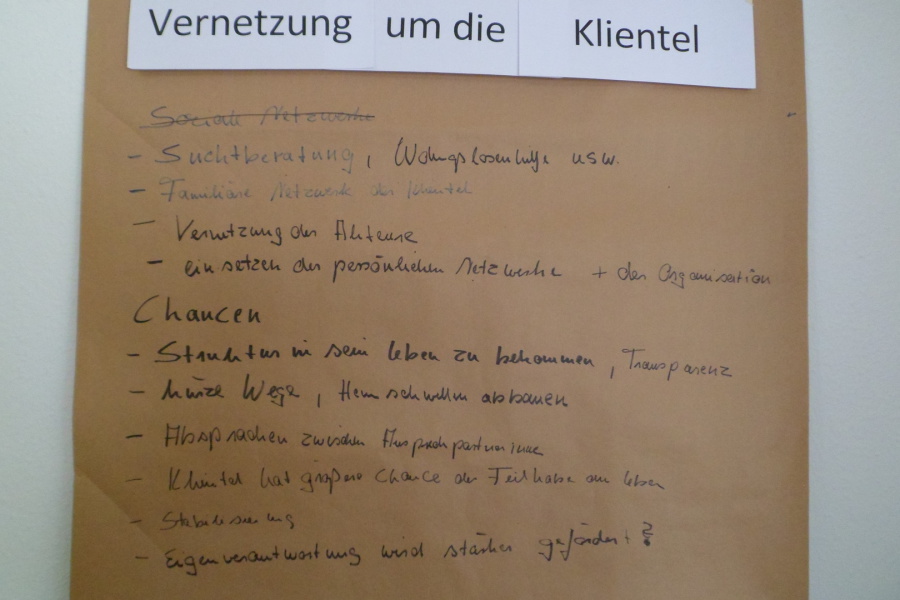 Vernetzung um die Klientel
Soziale Netzwerke
- Suchtberatung, Wohngslosenhilfe usw.
- Familiäre Netzwerk der Klientel
- Vernetzung der Akteure
- einsetzen der persönlichen Netzwerke + der Organisation
Chancen
- Struktur in sein leben zu bekommen, Transparenz
- kurze Wege, Hemschwellen abbauen
- Absprachen zwischen
- Klientel hat größere Chance der Teilhabe am leben
- Stabilisierung
- Eigenverantwortung wird stärker gefördert?